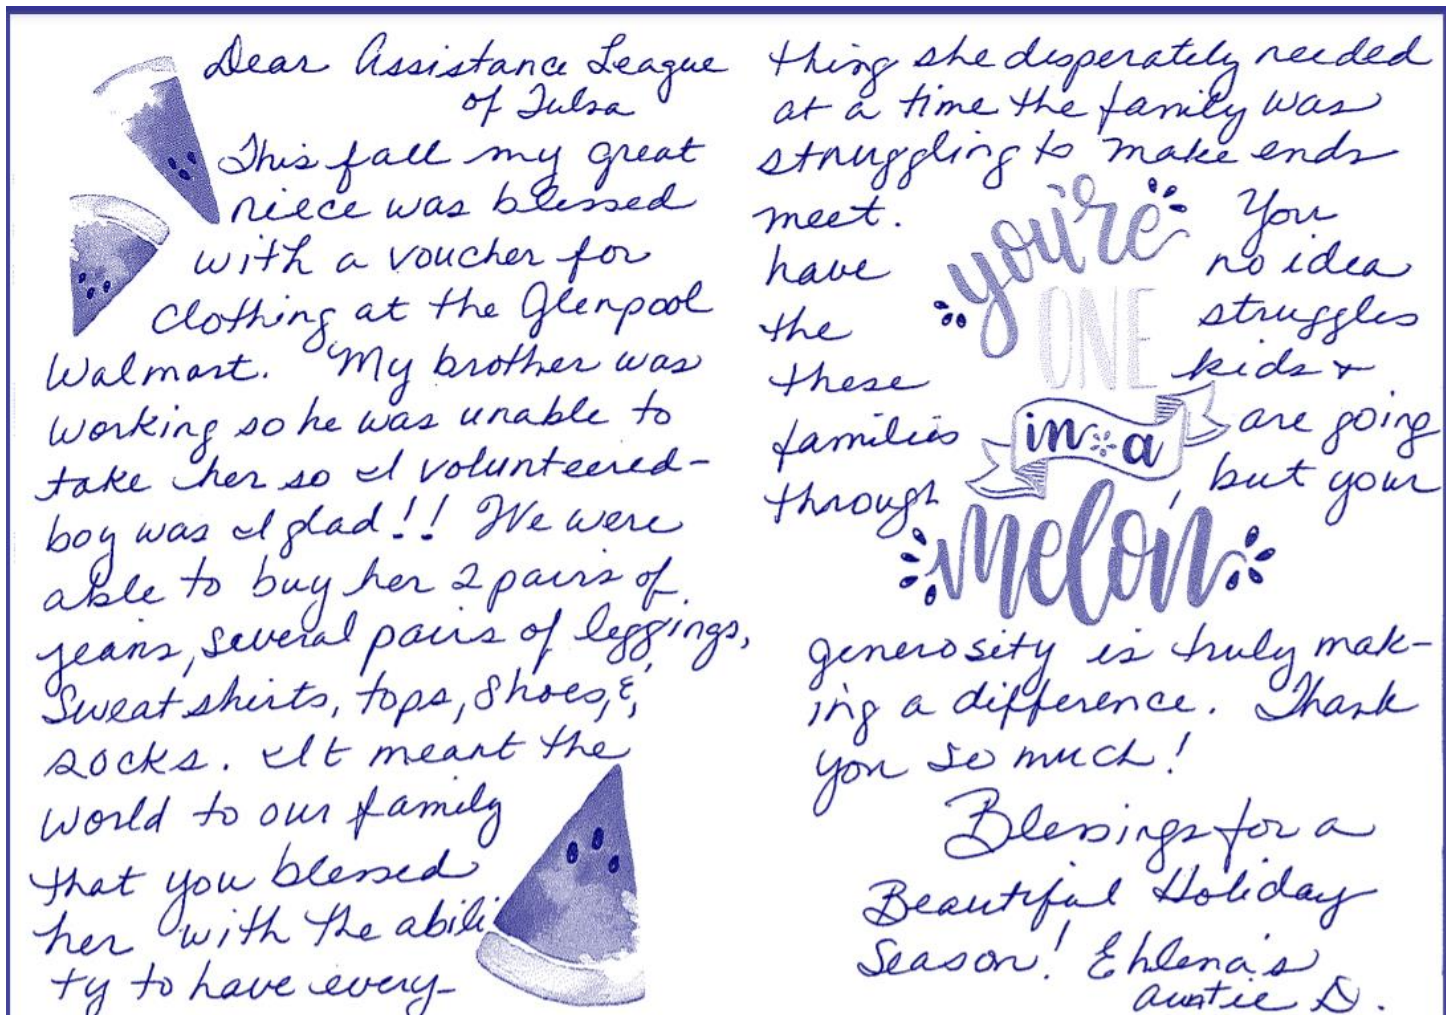 Dear Assistance League
of Tulsa
This fall my great
niece was blessed
with a voucher for
clothing at the Glenpool
Walmart. My brother was
working so he was unable to
take her so I volunteered-
boy was I glad!! We were
able to buy her 2 pairs of
jeans, several pairs of leggings,
Sweatshirts, tops, shoes, &
socks. It meant the
world to our family
that you blessed
her with the abili
ty to have every-
thing she desperately needed
at a time the family was
struggling to make ends
meet. You
have no idea
the struggles
these kids +
families are going
through, but your
you're
ONE
in a
melon
generosity is truly mak-
ing a difference. Thank
you so much!
Blessings for a
Beautiful Holiday
Season! Ehlena's
auntie D.